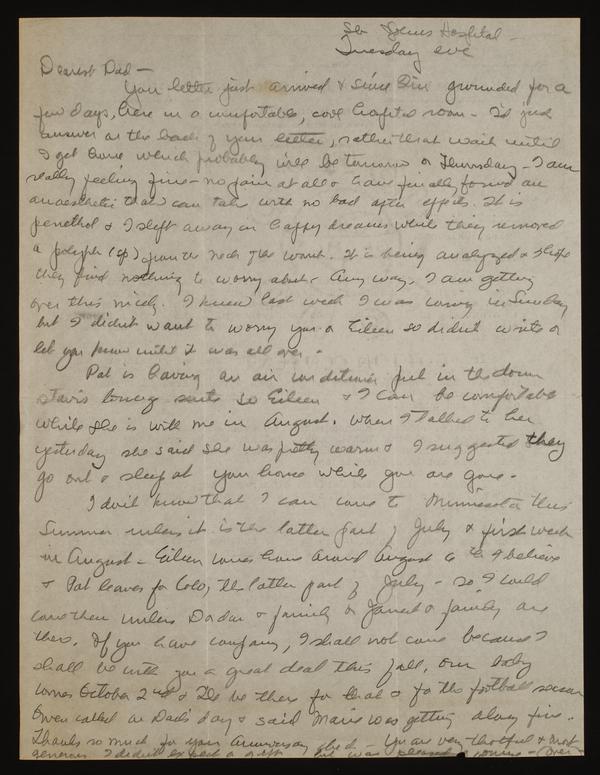 St Johns Hospital -
Tuesday eve
Dearest Dad -
Your letter just arrived & since I'm grounded for a
few days, here in a comfortable, cool hospital room - I'd just
answer on the back of your letter, rather than wait until
I get home, which probably will be tomorrow or Thursday - I am
really feeling fine - no pain at all & have finally found an
anaesthetic that I can take with no bad after effects. It is
penethol & I slept away in happy dreams while they removed
a polyph (sp) from the neck of the womb. It is being analyzed & I hope
they find nothing to worry about - Any way, I am getting
over this nicely. I knew last week I was coming in Sunday
but I didn't want to worry you or Eileen so didn't write or
let you know until it was all over.
Pat is having an air conditioner put in the down
stairs so Eileen & I can be comfortable
while she is with me in August. When I talked to her
yesterday she said she was pretty warm & I suggested they
go out & sleep at your house while you are gone.
I don't know that I can come to Minnesota this
Summer unless it is the latter part of July & first week
in August - Eileen comes home around August 6th I believe
& Pat leaves for Colo, the latter part of July - so I could
come then unless Dodar & family or Janet & family are
there. If you have company, I shall not come because I
shall be with you a great deal this fall, our baby
comes October 2nd & I'll be there for that & for the football season
Owen called on Dad's day & said Marie was getting along fine.
Thanks so much for your Anniversary check - You are very thoughtful & most
generous I didn't expect a gift but was pleased - (over -